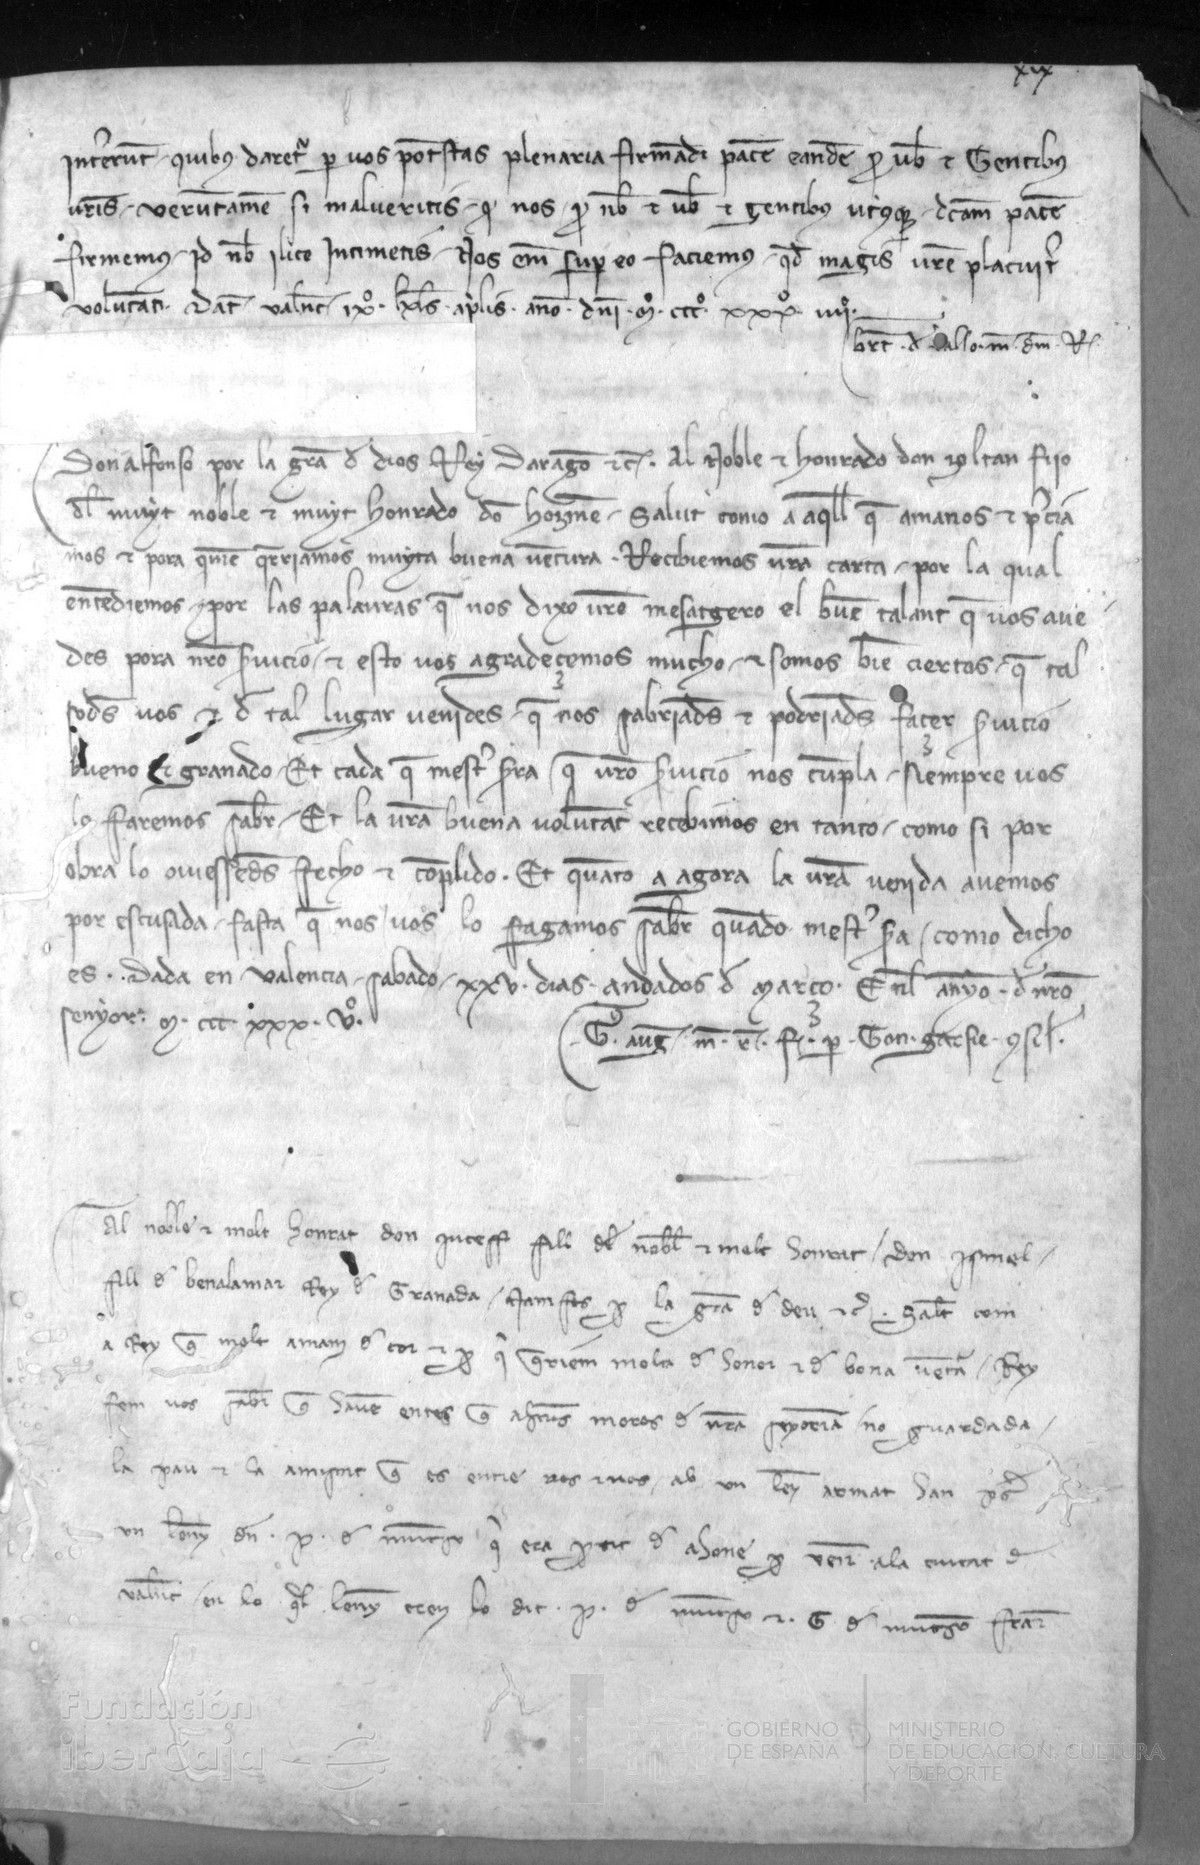 xix
int̃erunt · quibus daret̃ ꝑ vos potestas plenaria firmãdi pacẽ eandẽ ꝓ vob̃ ⁊ Gentibus
vr̃is / verũtamẽ si malueritis · qd̃ nos ꝓ nob̃ ⁊ vob̃ ⁊ gentibus utriusqꝫ dc̃am pacẽ
firmemus / id nob̃ ilico Intimetis / Nos em̃ sup eo faciemus / qd̃ magis vr̃e placuit̃
volũtati · Dat̃ · valñc̃ · ixº · kl̃s · aplis · anõ · dnĩ · mº · cccº · xxxº · iiijº ·
Don Alfonso por la gr̃a d̃ dios Rey Daragõ ⁊c̃ · Al Noble ⁊ honrado don fijo
dl̃ muyt noble ⁊ muyt honrado dõ Salut como a aq̃ll q̃ amamos ⁊ p̃cia
mos ⁊ pora quiẽ q̃rriamos muyta buena vẽtura · Recibiemos vr̃a carta / por la qual
entẽdiemos / ⁊ por las palauras q̃ nos dixo vr̃o mesatgero el buẽ talant q̃ uos aue
des pora nr̃o s̃uicio / ⁊ esto vos agradecemos mucho / ⁊ somos biẽ ciertos / q̃ tal
sodes vos ⁊ d̃ tal lugar venides / q̃ nos sabriades ⁊ podriades facer s̃uicio
bueno ⁊ granado / Et cada q̃ mest̃ s̃ra q̃ vr̃o s̃uicio nos cũpla / siempre vos
lo faremos sab̃r / Et la vr̃a buena volũtat recebimos en tanto / como si por
obra lo ouiessedes fecho ⁊ cõplido · Et quãto a agora la vr̃a venida auemos
por escusada / fasta q̃ nos vos lo fagamos sab̃r quãdo mest̃ s̃a / como dicho
es · Dada en valencia / sabado / xxv · dias · andados d̃ março · Enl̃ anyo · d̃ nr̃o
senyor · m · ccc · xxx · vº ·
G · aug̃ · m̃ · r̃ · f̃ · ꝑ · Gon · garsie · ꝯsil̃ ·
Al noble ⁊ molt honrat don Juceff fill del nobl̃ ⁊ molt honrat / don Ismel /
fill d̃ benalamar Rey d̃ Granada / Namfos ꝑ la gr̃a d̃ deu ⁊c̃ · Salut com
a Rey q̃ molt amam d̃ cor ⁊ ꝑ q̃ q̃riem molta d̃ honor ⁊ d̃ bona vẽtã / Rey
fem uos sab̃r q̃ hauẽ entes q̃ alg̃us moros d̃ vr̃a senyoria no guardada /
la pau ⁊ la amistat q̃ es entre nos ⁊ uos / ab un leny armat han p̃s
un leny d̃n · p · d̃ q̃ era partit d̃ ꝑ venir ala ciutat d̃
valñc̃ / en lo q̃l leny eren lo dit · p · d̃ ⁊ · G · d̃ frar̃
Fundación
iberCaja
GOBIERNO
DE ESPAÑA
MINISTERIO
DE EDUCACIÓN, CULTURA
Y DEPORTE